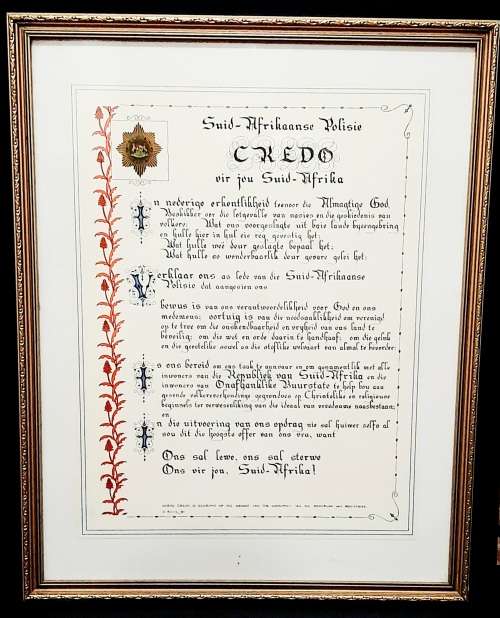 Suid-Afrikaanse Polisie
CREDO
vir jou Suid-Afrika
In nederige erkentlikheid teenoor die Almagtige God,
Beskikker oor die lotgevalle van nasies en die geskiedenis van
volkere; Wat ons voorgeslagte uit baie lande byeengebring
en hulle hier in hul eie reg gevestig het;
Wat hulle weë deur geslagte bepaal het;
Wat hulle so wonderbaarlik deur gevare gelei het;
Verklaar ons as lede van die Suid-Afrikaanse
Polisie dat aangesien ons
bewus is van ons verantwoordelikheid voor God en ons
medemens; oortuig is van die noodsaaklikheid om verenigd
op te tree om die onskendbaarheid en vryheid van ons land te
beveilig; om die wet en orde daarin te handhaaf; om die geluk
en die geestelike sowel as die stoflike welvaart van almal te bevorder;
Is ons bereid om ons taak te aanvaar en om gesamentlik met alle
inwoners van die Republiek van Suid-Afrika en die
inwoners van Onafhanklike Buurstate te help bou aan
gesonde volkereverhoudinge gegrondves op Christelike en religieuse
beginsels ter verwesenliking van die ideaal van vreedsame naasbestaan;
en
In die uitvoering van ons opdrag nie sal huiwer selfs al
sou dit die hoogste offer van ons vra, want
Ons sal lewe, ons sal sterwe
Ons vir jou, Suid-Afrika!